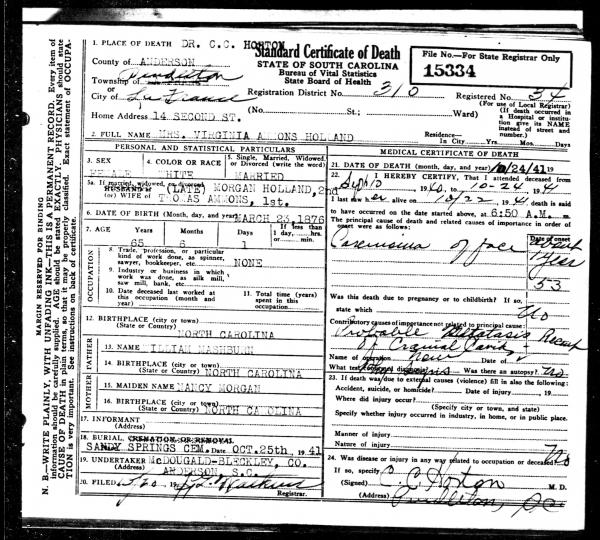 1. PLACE OF DEATH DR. C.C. HORTON
Standard Certificate of Death
STATE OF SOUTH CAROLINA
Bureau of Vital Statistics
State Board of Health
File No.—For State Registrar Only
15334
County of ANDERSON
Township of Pendleton
City of La France
Registration District No. 310
Registered No. 34
(For use of Local Registrar)
(No. St.; Ward)
(If death occurred in a Hospital or institution give its NAME instead of street and number.)
Home Address 14 SECOND ST.
2. FULL NAME MRS. VIRGINIA AMMONS HOLLAND
Residence— In City Yrs. Mos. Days
PERSONAL AND STATISTICAL PARTICULARS
3. SEX
FEMALE
4. COLOR OR RACE
WHITE
5. Single, Married, Widowed, or Divorced (write the word)
MARRIED
5a. If married, widowed, or divorced
HUSBAND of (LATE) MORGAN HOLLAND, 2nd
(or) WIFE of THOMAS AMMONS, 1st.
6. DATE OF BIRTH (Month, day, and year) MARCH 23, 1876
7. AGE Years Months Days If less than 1 day, hrs. or min.
65 6 1
OCCUPATION
8. Trade, profession, or particular kind of work done, as spinner, sawyer, bookkeeper, etc. NONE
9. Industry or business in which work was done, as silk mill, saw mill, bank, etc.
10. Date deceased last worked at this occupation (month and year)
11. Total time (years) spent in this occupation
12. BIRTHPLACE (city or town)
(State or Country) NORTH CAROLINA
FATHER
13. NAME WILLIAM MASHBURN
14. BIRTHPLACE (city or town)
(State or Country) NORTH CAROLINA
MOTHER
15. MAIDEN NAME NANCY MORGAN
16. BIRTHPLACE (city or town)
(State or Country) NORTH CAROLINA
17. INFORMANT
(Address)
18. BURIAL, CREMATION OR REMOVAL
SANDY SPRINGS CEM. Date OCT. 25th, 1941
19. UNDERTAKER McDOUGALD-BLECKLEY, CO.
(Address) ANDERSON S.C.
20. FILED
Registrar.
MEDICAL CERTIFICATE OF DEATH
21. DATE OF DEATH (month, day, and year) 10/24/41 19
22. I HEREBY CERTIFY, That I attended deceased from
Sept 15 1940, to 10-24 1941
I last saw her alive on 10/22, 1941 death is said
to have occurred on the date stated above, at 6:50 A.M. m.
The principal cause of death and related causes of importance in order of onset were as follows:
Date of onset
Carcinoma of face
53
Was this death due to pregnancy or to childbirth? If so, state which No
Contributory causes of importance not related to principal cause:
Probable Metastasis Recent
of Cranial Cavity
Name of operation none Date of
What test confirmed diagnosis Was there an autopsy? No
23. If death was due to external causes (violence) fill in also the following:
Accident, suicide, or homicide? Date of injury , 19
Where did injury occur?
(Specify city or town, and state)
Specify whether injury occurred in industry, in home, or in public place.
Manner of injury
Nature of injury
24. Was disease or injury in any way related to occupation of deceased? No
If so, specify
(Signed) C. C. Horton M. D.
(Address) Pendleton, SC
MARGIN RESERVED FOR BINDING
N. B.—WRITE PLAINLY, WITH UNFADING INK—THIS IS A PERMANENT RECORD. Every item of information should be carefully supplied. AGE should be stated EXACTLY. PHYSICIANS should state CAUSE OF DEATH in plain terms, so that it may be properly classified. Exact statement of OCCUPATION is very important. See instructions on back of certificate.